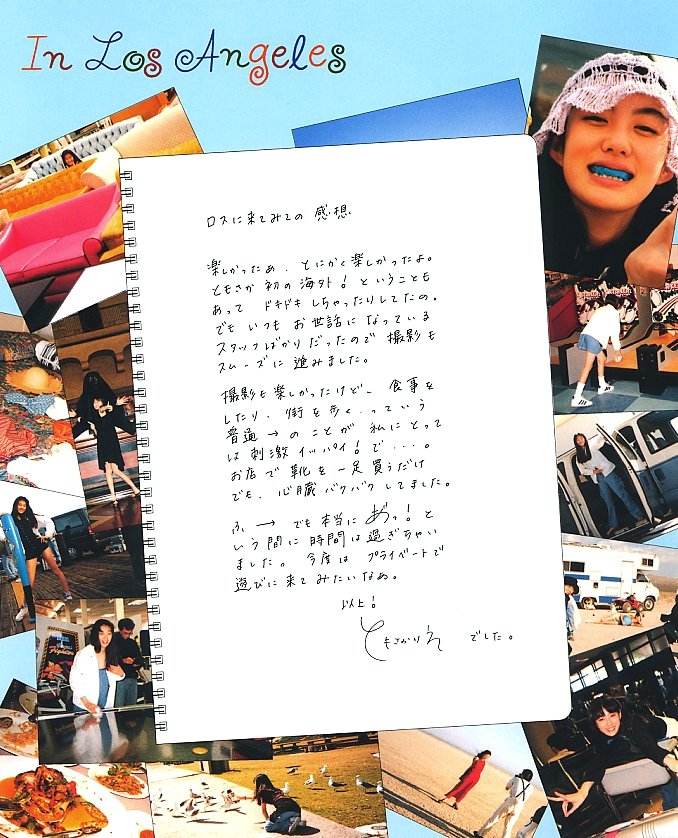 In Los Angeles
ロスに来てみての 感想
楽しかったぁ、とにかく楽しかったよ。
ともさか 初の 海外！ということも
あって ドキドキ しちゃったりしてたの。
でも いつも お世話に なっている
スタッフばかり だったので 撮影も
スムーズに 進みました。
撮影も楽しかったけど、食事を
したり、街を歩く、っていう
普通→のことが 私にとって
は 刺激イッパイ！で・・・。
お店で 靴を 一足 買うだけ
でも、心臓バクバクしてました。
ふ→ でも本当に あっ！と
いう間に 時間は 過ぎちゃい
ました。今度は プライベートで
遊びに来てみたいなぁ。
以上！
ともさかりえ でした。